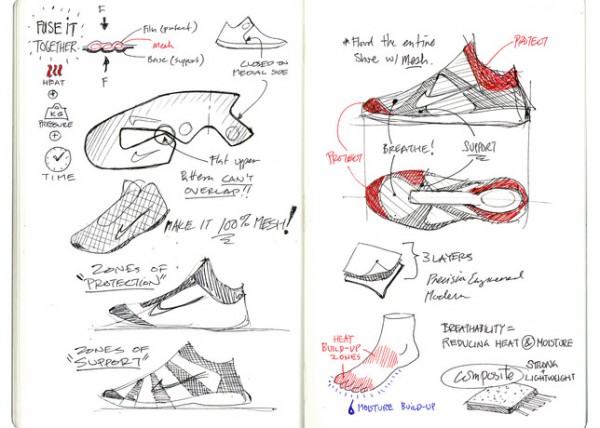 FUSE iT
TOGETHER
HEAT
KG
PRESSURE
TIME
F
Film (protect)
Mesh
Base (support)
F
CLOSED ON
MEDIAL SIDE
Flat upper
Pattern CAN'T
OVERLAP!!
MAKE IT 100% MESH!
ZONES OF
"PROTECTION"
ZONES OF
"SUPPORT"
* Flood the entire
Shoe w/ Mesh.
PROTECT
PROTECT
BREATHE!
SUPPORT
3 LAYERS
Precision Engineered
Modern
HEAT
BUILD-UP
ZONES
MOISTURE BUILD-UP
BREATHABILITY =
REDUCING HEAT & MOISTURE
Composite
STRONG
+ LIGHTWEIGHT